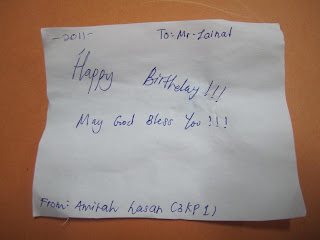 -2011-
To: Mr. Zainal
Happy Birthday!!!
May God Bless You!!!
From: Amirah hasan (3KP1)